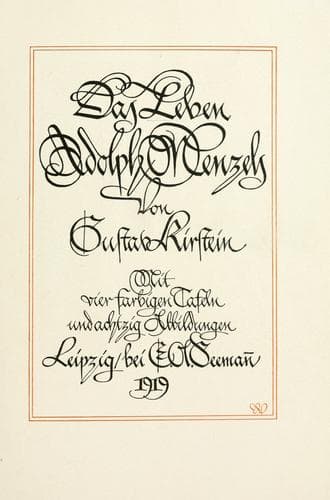 Das Leben
Adolph Menzels
Von
Gustav Kirstein
Mit
vier farbigen Tafeln
und achtzig Abbildungen
Leipzig / bei E. A. Seeman̄
1919